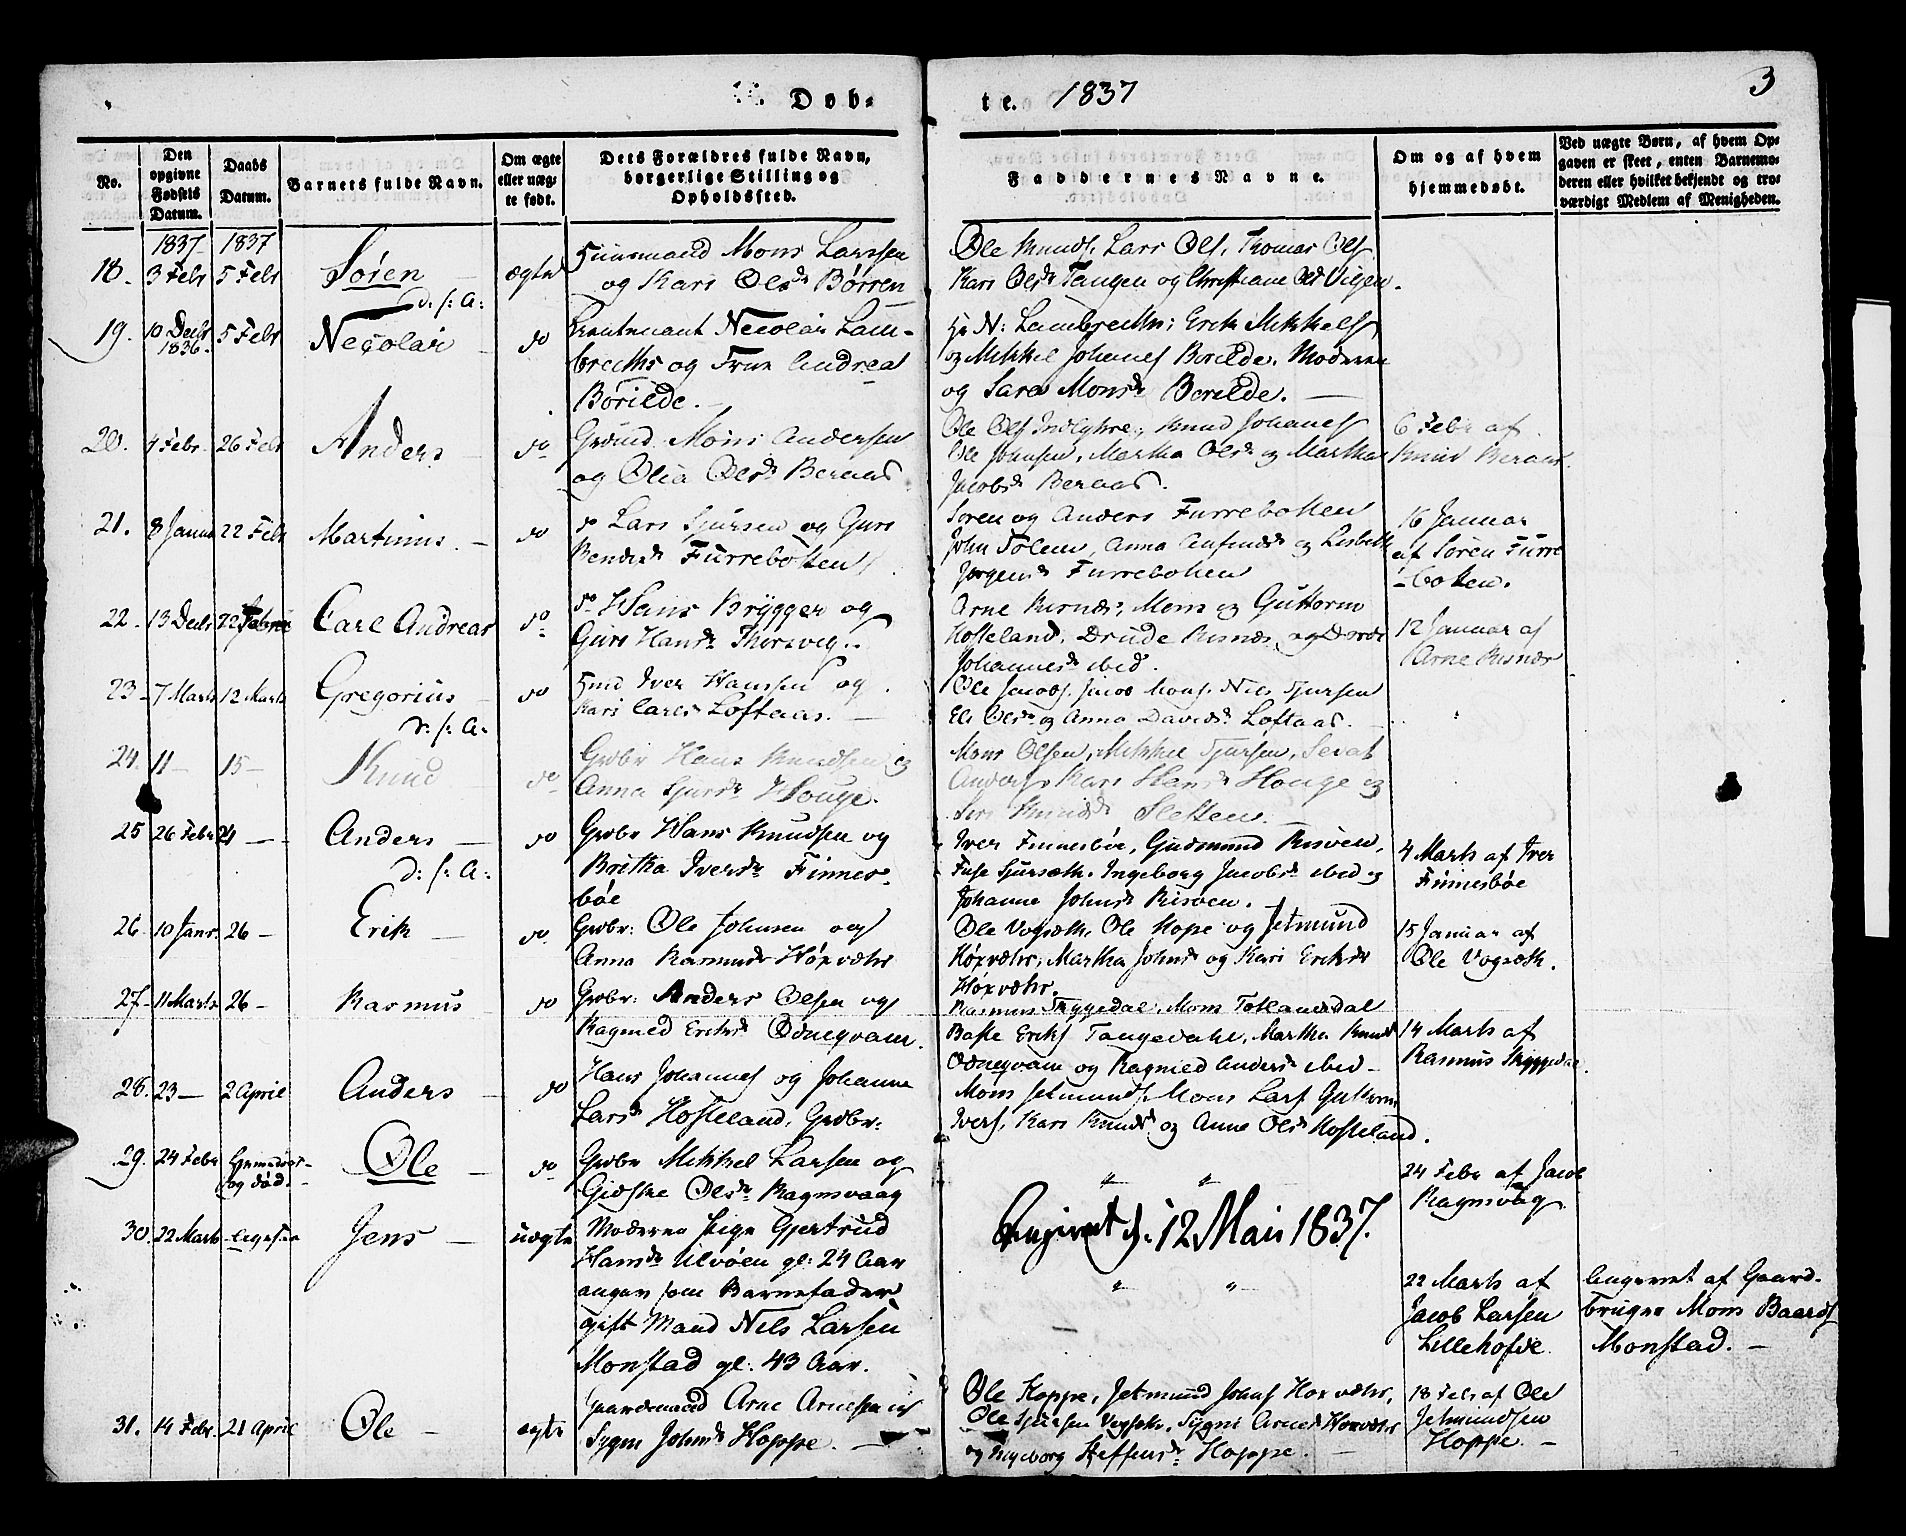 Døb-
te. 1837
3
No.
Den opgivne Fødsels Datum.
Daabs Datum.
Barnets fulde Navn.
Om ægte eller uæg-te født.
Dets Forældres fulde Navn, borgerlige Stilling og Opholdssted.
Faddernes Navne.
Om og af hvem hjemmedøbt.
Ved uægte Børn, af hvem Op-
gaven er skeet, enten Barnemo-
deren eller hvilket bekjendt og tro-
værdigt Medlem af Menigheden.
1837 1837
18. 3 Febr 5 Febr Søren ægte
Huusmand Mons Larssen
og Kari Olsdr Børren
Ole Knuds. Lars Ols, Thomas Ols
Kari Olsdr Tangen og Christiane Olsdr Viigen.
d: s: A:
19. 10 Decbr 1836. 5 Febr Necolai do
Lieutenant Necolai Lam-
brecths og Frue Andrea
Børilde.
Hr N: Lambrecths; Erik Mikkels,
og Mikkel Johans Børilde. Moderen
og Sara Monsdr Børilde.
20. 4 Febr. 26 Febr Anders do
Grdmd. Mons Andersen
og Olia Olsdr Beraas
Ole Ols Indlyhre, Knud Johans
Ole Johnsen, Martha Olsdr og Martha
Jacobsdr Beraas.
6 Febr af
Knud Beraas.
21. 8 Janu 22 Febr Martinus. do
do Lars Sjursen og Guro
Bendixdr Furrebotten
Søren og Anders Furrebotten
John Solem, Anna Anfindsdr og Lisbeth
Jørgensdr Furrebotten
16 Januar
af Søren Furre
-botten.
22. 13 Decbr 22 Febru Carl Andreas do
do Hans Brygger og
Guro Hansdr Thorsvig.
Arne Risnæs, Mons og Guttorm
Hosteland, Drude Risnæs og
Johannesdr ibid.
12 Januar af
Arne Risnæs
23 7 Marts 12 Marts Gregorius do
Hmd Iver Hanssen og
Kari Larsdr Loftaas.
Ole Jacobs. Jacob Mons. Nils Sjursen
Eli Olsdr og Anna Davidsdr Loftaas.
d: s: A:
24. 11 — 15 — Knud do
Grdbr Hans Knudsen og
Anna Sjursdr Houge.
Mons Olsen, Mikkel Sjursen, Sevat
Anders. Kari Hansdr Houge og
Siri Knudsdr Sletten.
25 26 Febr 24 — Anders do
Grdbr Hans Knudsen og
Britha Iversdr Finnes-
bøe
Iver Finnesbøe, Gudmund Risøen,
Fuse Sjursæth. Ingeborg Jacobsdr ibid og
Johanne Johnsdr Risøen.
4 Marts af Iver
Finnesbøe
d: s: A:
26. 10 Janr. 26 — Erik do
Grdbr: Ole Johnsen og
Anna Rasmusdr Hoxvæhr
Ole Vogsæth, Ole Hope og Jetmund
Hoxvæhr, Martha Johnsdr og Kari Eriksdr
Hoxvæhr.
15 Januar af
Ole Vogsæth.
27. 11 Marts 26 — Rasmus do
Grdbr: Anders Olsen og
Ragnied Eriksdr Odneqvam.
Rasmus Tryggedal, Mons Totlandsdal
Baste Eriks Tangedahl, Martha Knudsdr
Odneqvam og Ragnied Andersdr ibid —
14 Marts af
Rasmus Skyggedal.
28. 23 — 2 April Anders do
Hans Johannes og Johanne
Larsdr Hosteland, Grdbr:
Mons Jetmunds. Mons Lars Guttorm
Ivers, Kari Knudsdr og Anne Olsdr Hosteland.
29. 24 Febr Hjemdøbt og død. Ole do
Grdbr Mikkel Larsen og
Gidske Olsdr Ragnsvaag
" "
24 Febr af Jacob
Ragnsvaag
30. 22 Marts ligesaa Jens uægte
Moderen Pige Gjertrud
Hansdr Ulvøen gl: 24 Aar
angav som Barnefader
gift Mand Nels Larsen
Monstad gl: 43 Aar.
Angivet d. 12 Mai 1837.
" "
22 Marts af
Jacob Larsen
Lillehofde
Angivet af Gaard-
bruger Mons Baards
Monstad. —
31. 14 Febr. 21 April Ole — ægte
Gaardmand Arne Arnesen og
Sygni Johnsdr Hoppe.
Ole Hoppe, Jetmund Johns Hoxvæhr,
Ole Sjursen Vogsæth, Sygni Arnesdr Hoxvæhr
og Ingeborg Steffensdr Hoppe.
18 Febr af Ole
Jetmundsen
Hoppe. —